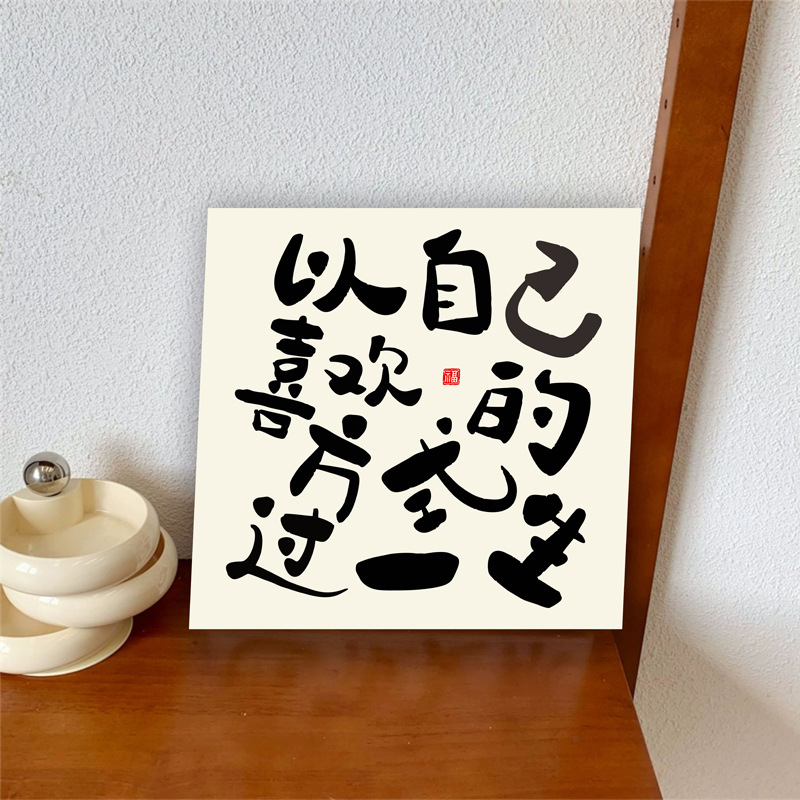 以自己
喜欢的
方式
过一生
福